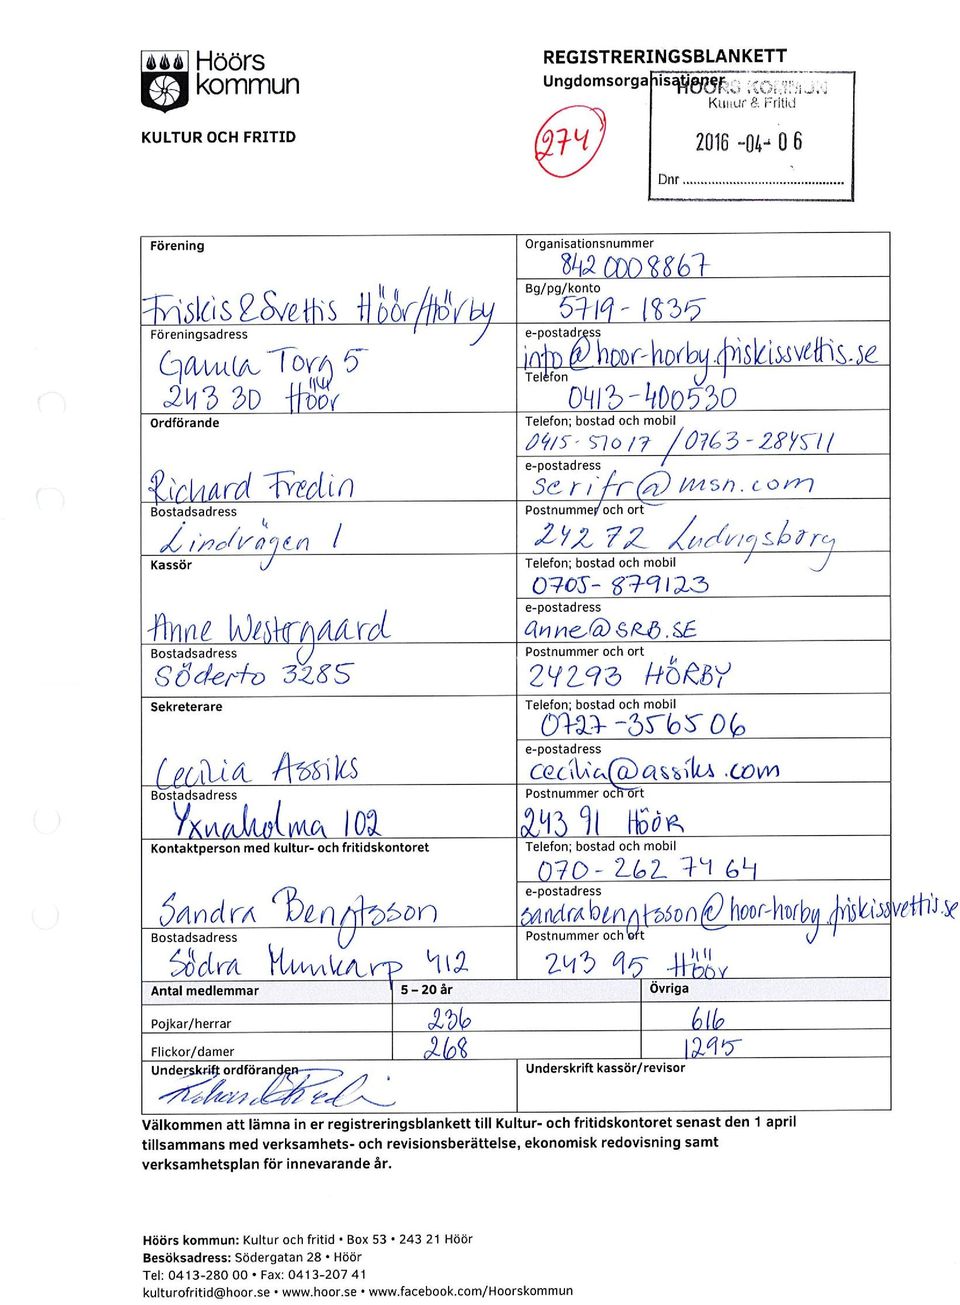 Höörs
kommun
KULTUR OCH FRITID
REGISTRERINGSBLANKETT
Ungdomsorganisationer
HÖÖRS KOMMUN
Kultur & Fritid
2016 -04- 06
Dnr
274
Förening
Friskis & Svettis Höör/Hörby
Organisationsnummer
842 000 8867
Bg/pg/konto
5719-1835
Föreningsadress
Gamla Torg 5
243 30 Höör
e-postadress
info@hoor-horby.friskissvettis.se
Telefon
0413-400530
Ordförande
Richard Fredin
Telefon; bostad och mobil
0415-51017 / 0763-284511
e-postadress
scrifr@msn.com
Bostadsadress
Lindvägen 1
Postnummer och ort
242 72 Ludvigsborg
Kassör
Anne Westergaard
Telefon; bostad och mobil
0705-879123
e-postadress
anne@SRB.SE
Bostadsadress
Söderto 3285
Postnummer och ort
24293 HÖRBY
Sekreterare
Cecilia Assiks
Telefon; bostad och mobil
0727-356506
e-postadress
cecilia@assiks.com
Bostadsadress
Yxnaholma 102
Postnummer och ort
243 91 Höör
Kontaktperson med kultur- och fritidskontoret
Sandra Bengtsson
Telefon; bostad och mobil
070-262 74 64
e-postadress
sandrabengtsson@hoor-horby.friskissvettis.se
Bostadsadress
Södra Munkarp 412
Postnummer och ort
243 95 Höör
Antal medlemmar 5 – 20 år Övriga
Pojkar/herrar 236 616
Flickor/damer 268 1295
Underskrift ordföranden
Underskrift kassör/revisor
Välkommen att lämna in er registreringsblankett till Kultur- och fritidskontoret senast den 1 april
tillsammans med verksamhets- och revisionsberättelse, ekonomisk redovisning samt
verksamhetsplan för innevarande år.
Höörs kommun: Kultur och fritid • Box 53 • 243 21 Höör
Besöksadress: Södergatan 28 • Höör
Tel: 0413-280 00 • Fax: 0413-207 41
kulturofritid@hoor.se • www.hoor.se • www.facebook.com/Hoorskommun